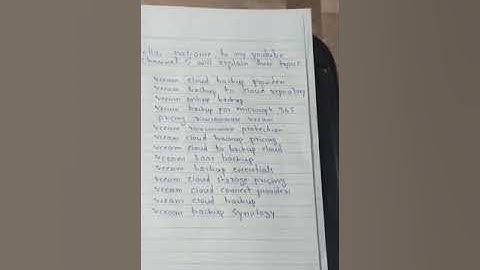 Hello welcome to my youtube
channel I will explain this topic
veeam cloud backup provider
veeam backup to cloud repository
veeam online backup
veeam backup for microsoft 365
pricing ransomware veeam
veeam ransomware protection
veeam cloud backup pricing
veeam cloud to backup cloud
veeam saas backup
veeam backup essentials
veeam cloud storage pricing
veeam cloud connect providers
veeam cloud backup
veeam backup synology